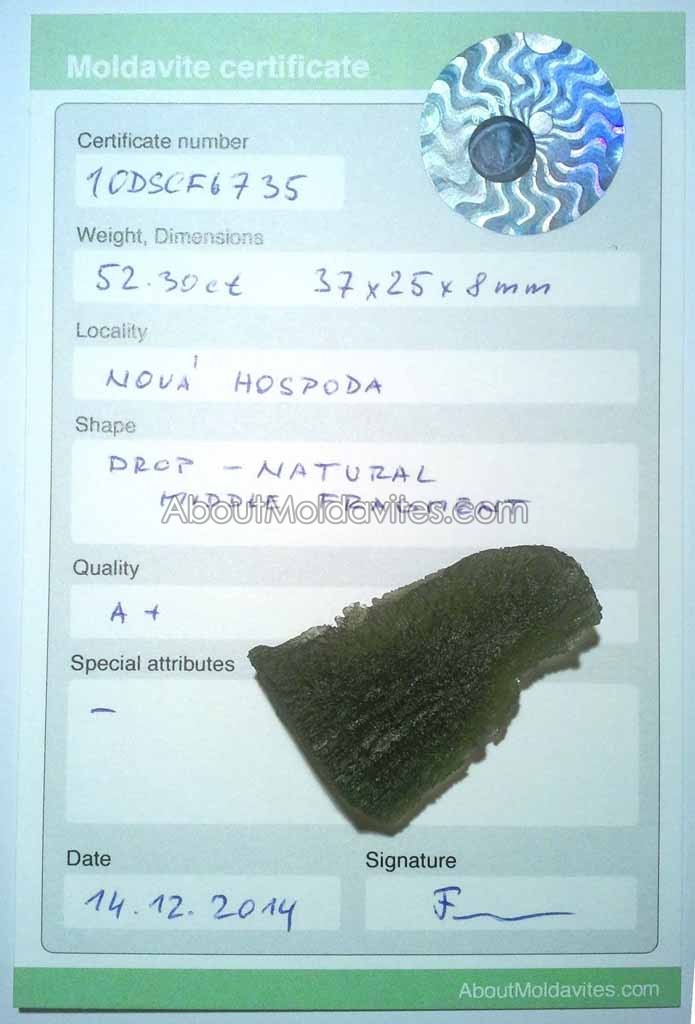 Moldavite certificate
Certificate number
10DSCF6735
Weight, Dimensions
52.30ct 37x25x8mm
Locality
NOVÁ HOSPODA
Shape
DROP - NATURAL
MIDDLE FRAGMENT
AboutMoldavites.com
Quality
A +
Special attributes
-
Date Signature
14.12.2014 F
AboutMoldavites.com